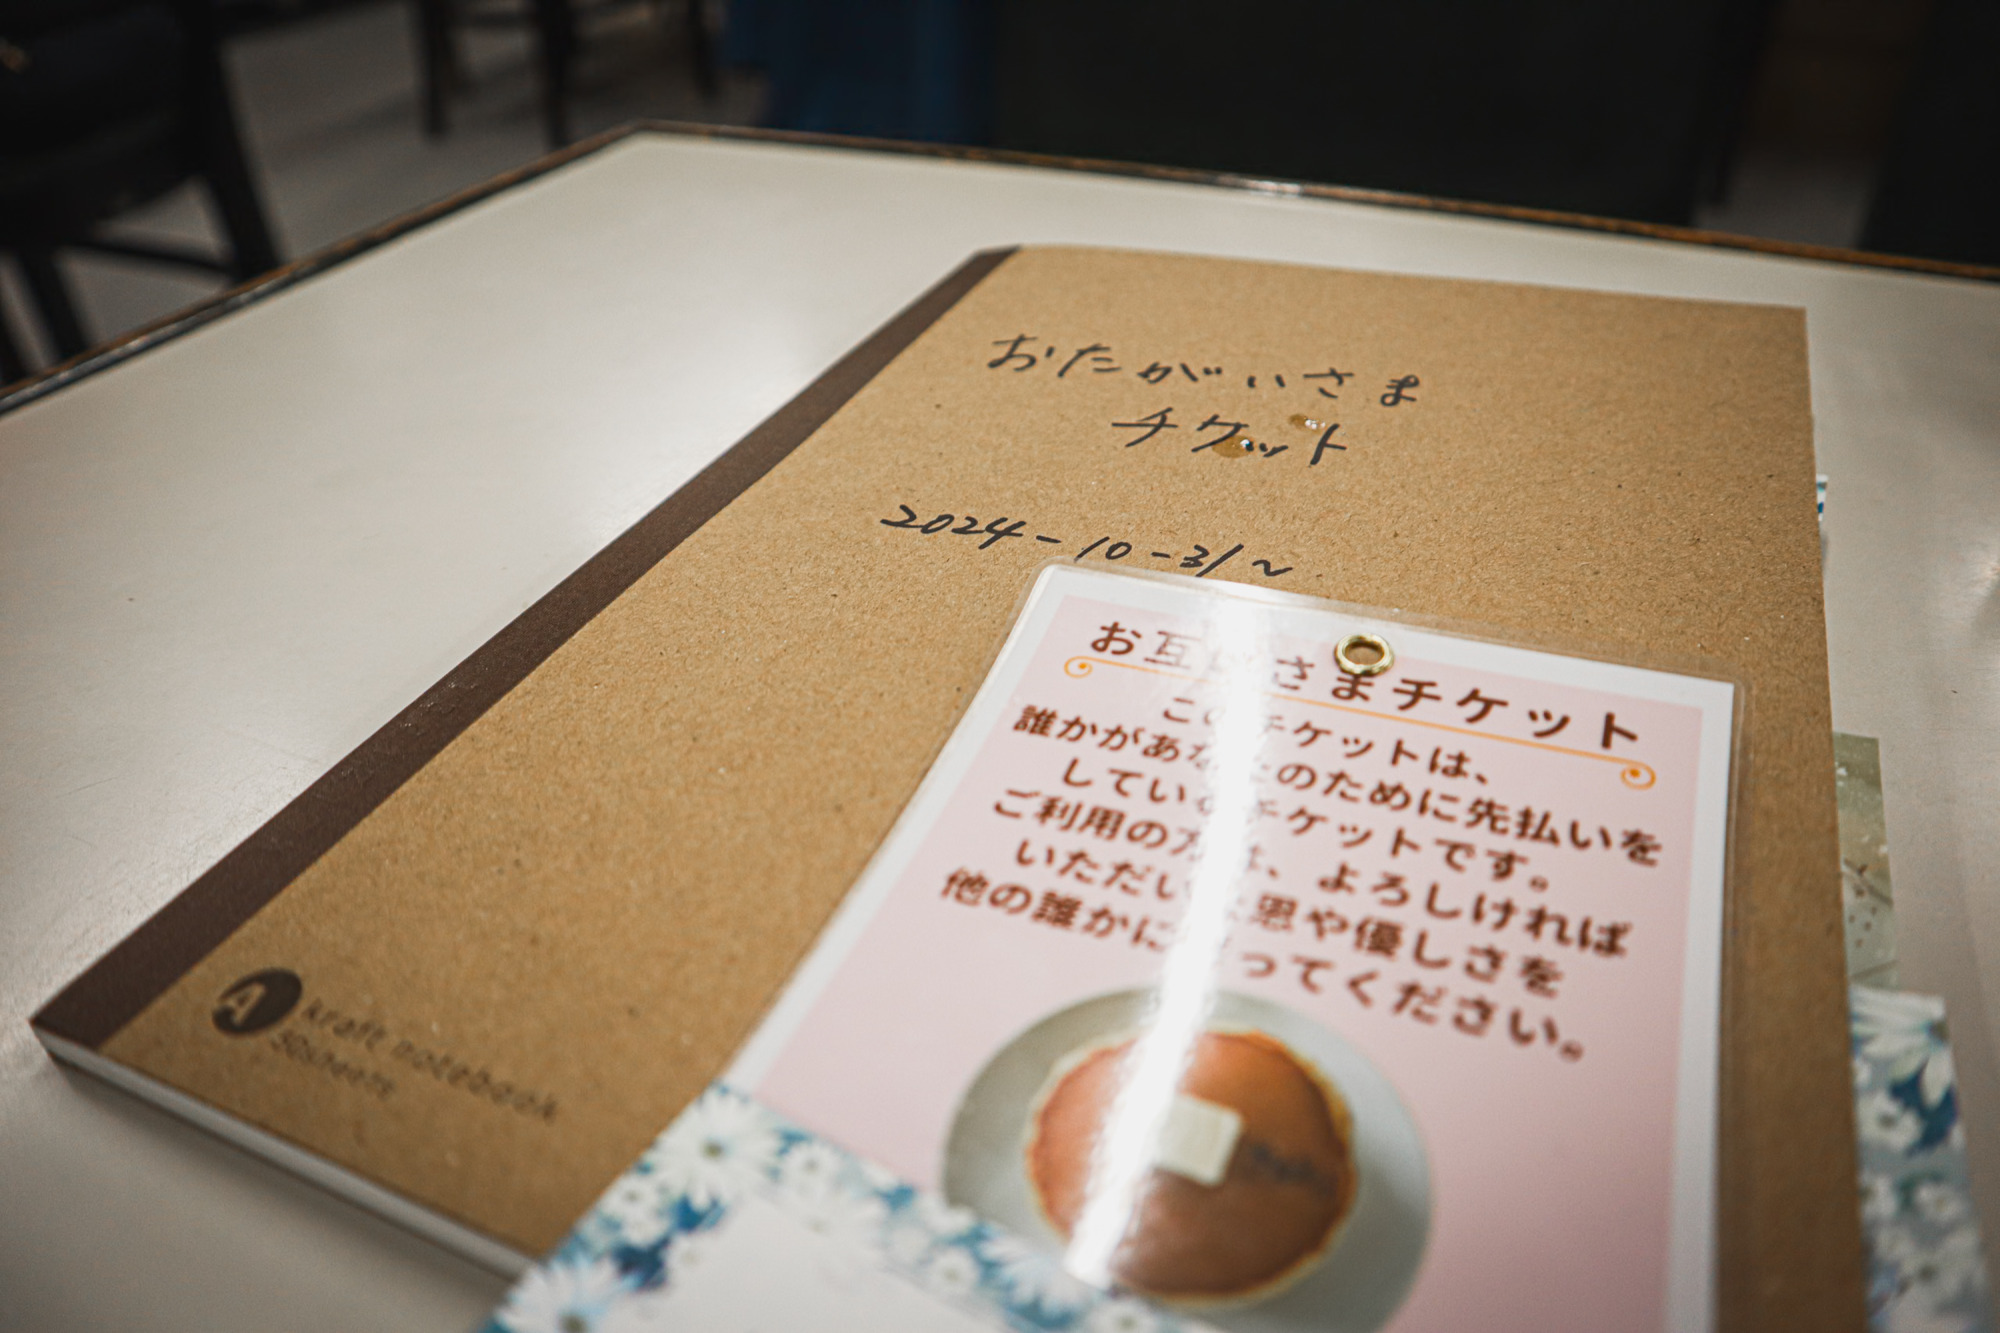 おたがいさま
チケット
2024-10-31~
お互いさまチケット
このチケットは、
誰かがあなたのために先払いを
しているチケットです。
ご利用の方は、よろしければ
いただいた恩や優しさを
他の誰かに送ってください。
A
kraft notebook
50sheets